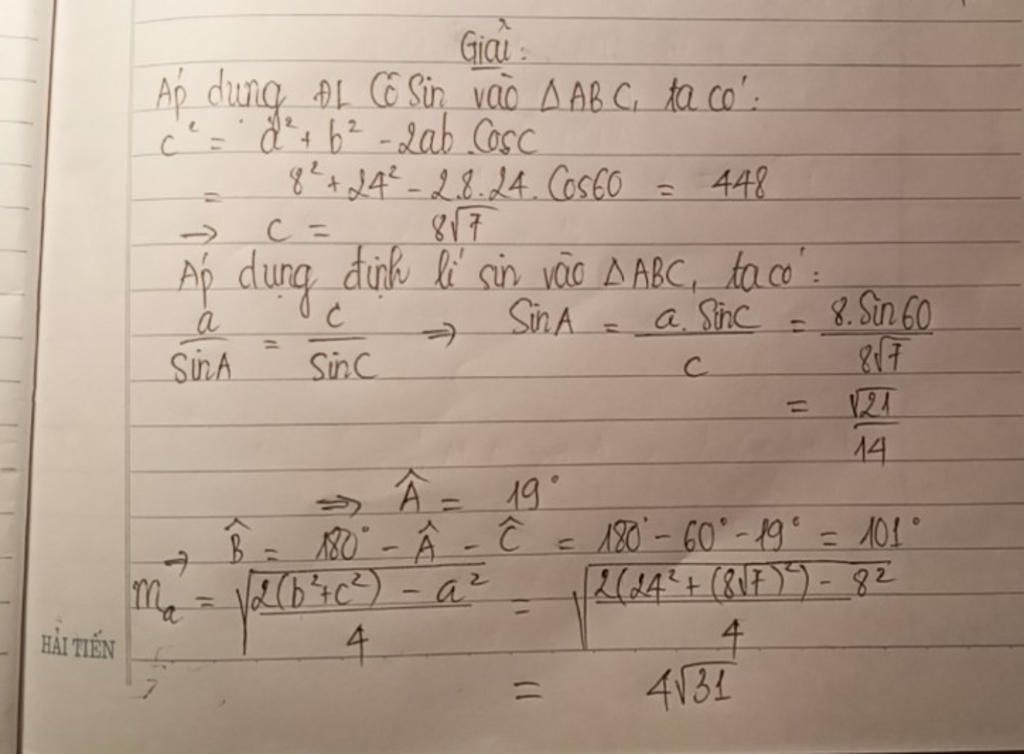 Giải:
Áp dung ĐL Cô Sin vào ΔABC, ta có:
c² = a² + b² - 2ab.Cosc
= 8² + 24² - 2.8.24.Cos60 = 448
→ c = 8√7
Áp dụng định lí sin vào ΔABC, ta có:
a/SinA = c/SinC ⇒ SinA = a.SinC/c = 8.Sin60/8√7
= √21/14
⇒ Â = 19°
→ B̂ = 180° - Â - Ĉ = 180° - 60° - 19° = 101°
mₐ = √(2(b²+c²) - a²/4) = √(2(24² + (8√7)²) - 8²/4)
HẢI TIẾN
= 4√31